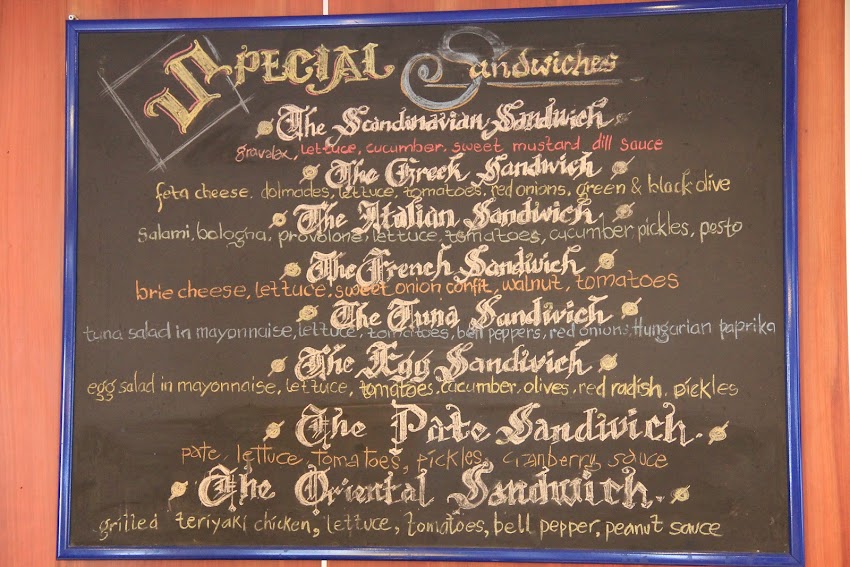 Special Sandwiches
The Scandinavian Sandwich
gravalax, lettuce, cucumber, sweet mustard, dill sauce
The Greek Sandwich
feta cheese, dolmades, lettuce, tomatoes, red onions, green & black olive
The Italian Sandwich
Salami, bologna, provolone, lettuce, tomatoes, cucumber, pickles, pesto
The French Sandwich
brie cheese, lettuce, sweet onion confit, walnut, tomatoes
The Tuna Sandwich
tuna salad in mayonnaise, lettuce, tomatoes, bell peppers, red onions, Hungarian paprika
The Egg Sandwich
egg salad in mayonnaise, lettuce, tomatoes, cucumber, olives, red radish, pickles
The Pate Sandwich.
pate, lettuce, tomatoes, pickles, cranberry sauce
The Oriental Sandwich.
grilled teriyaki chicken, lettuce, tomatoes, bell pepper, peanut sauce